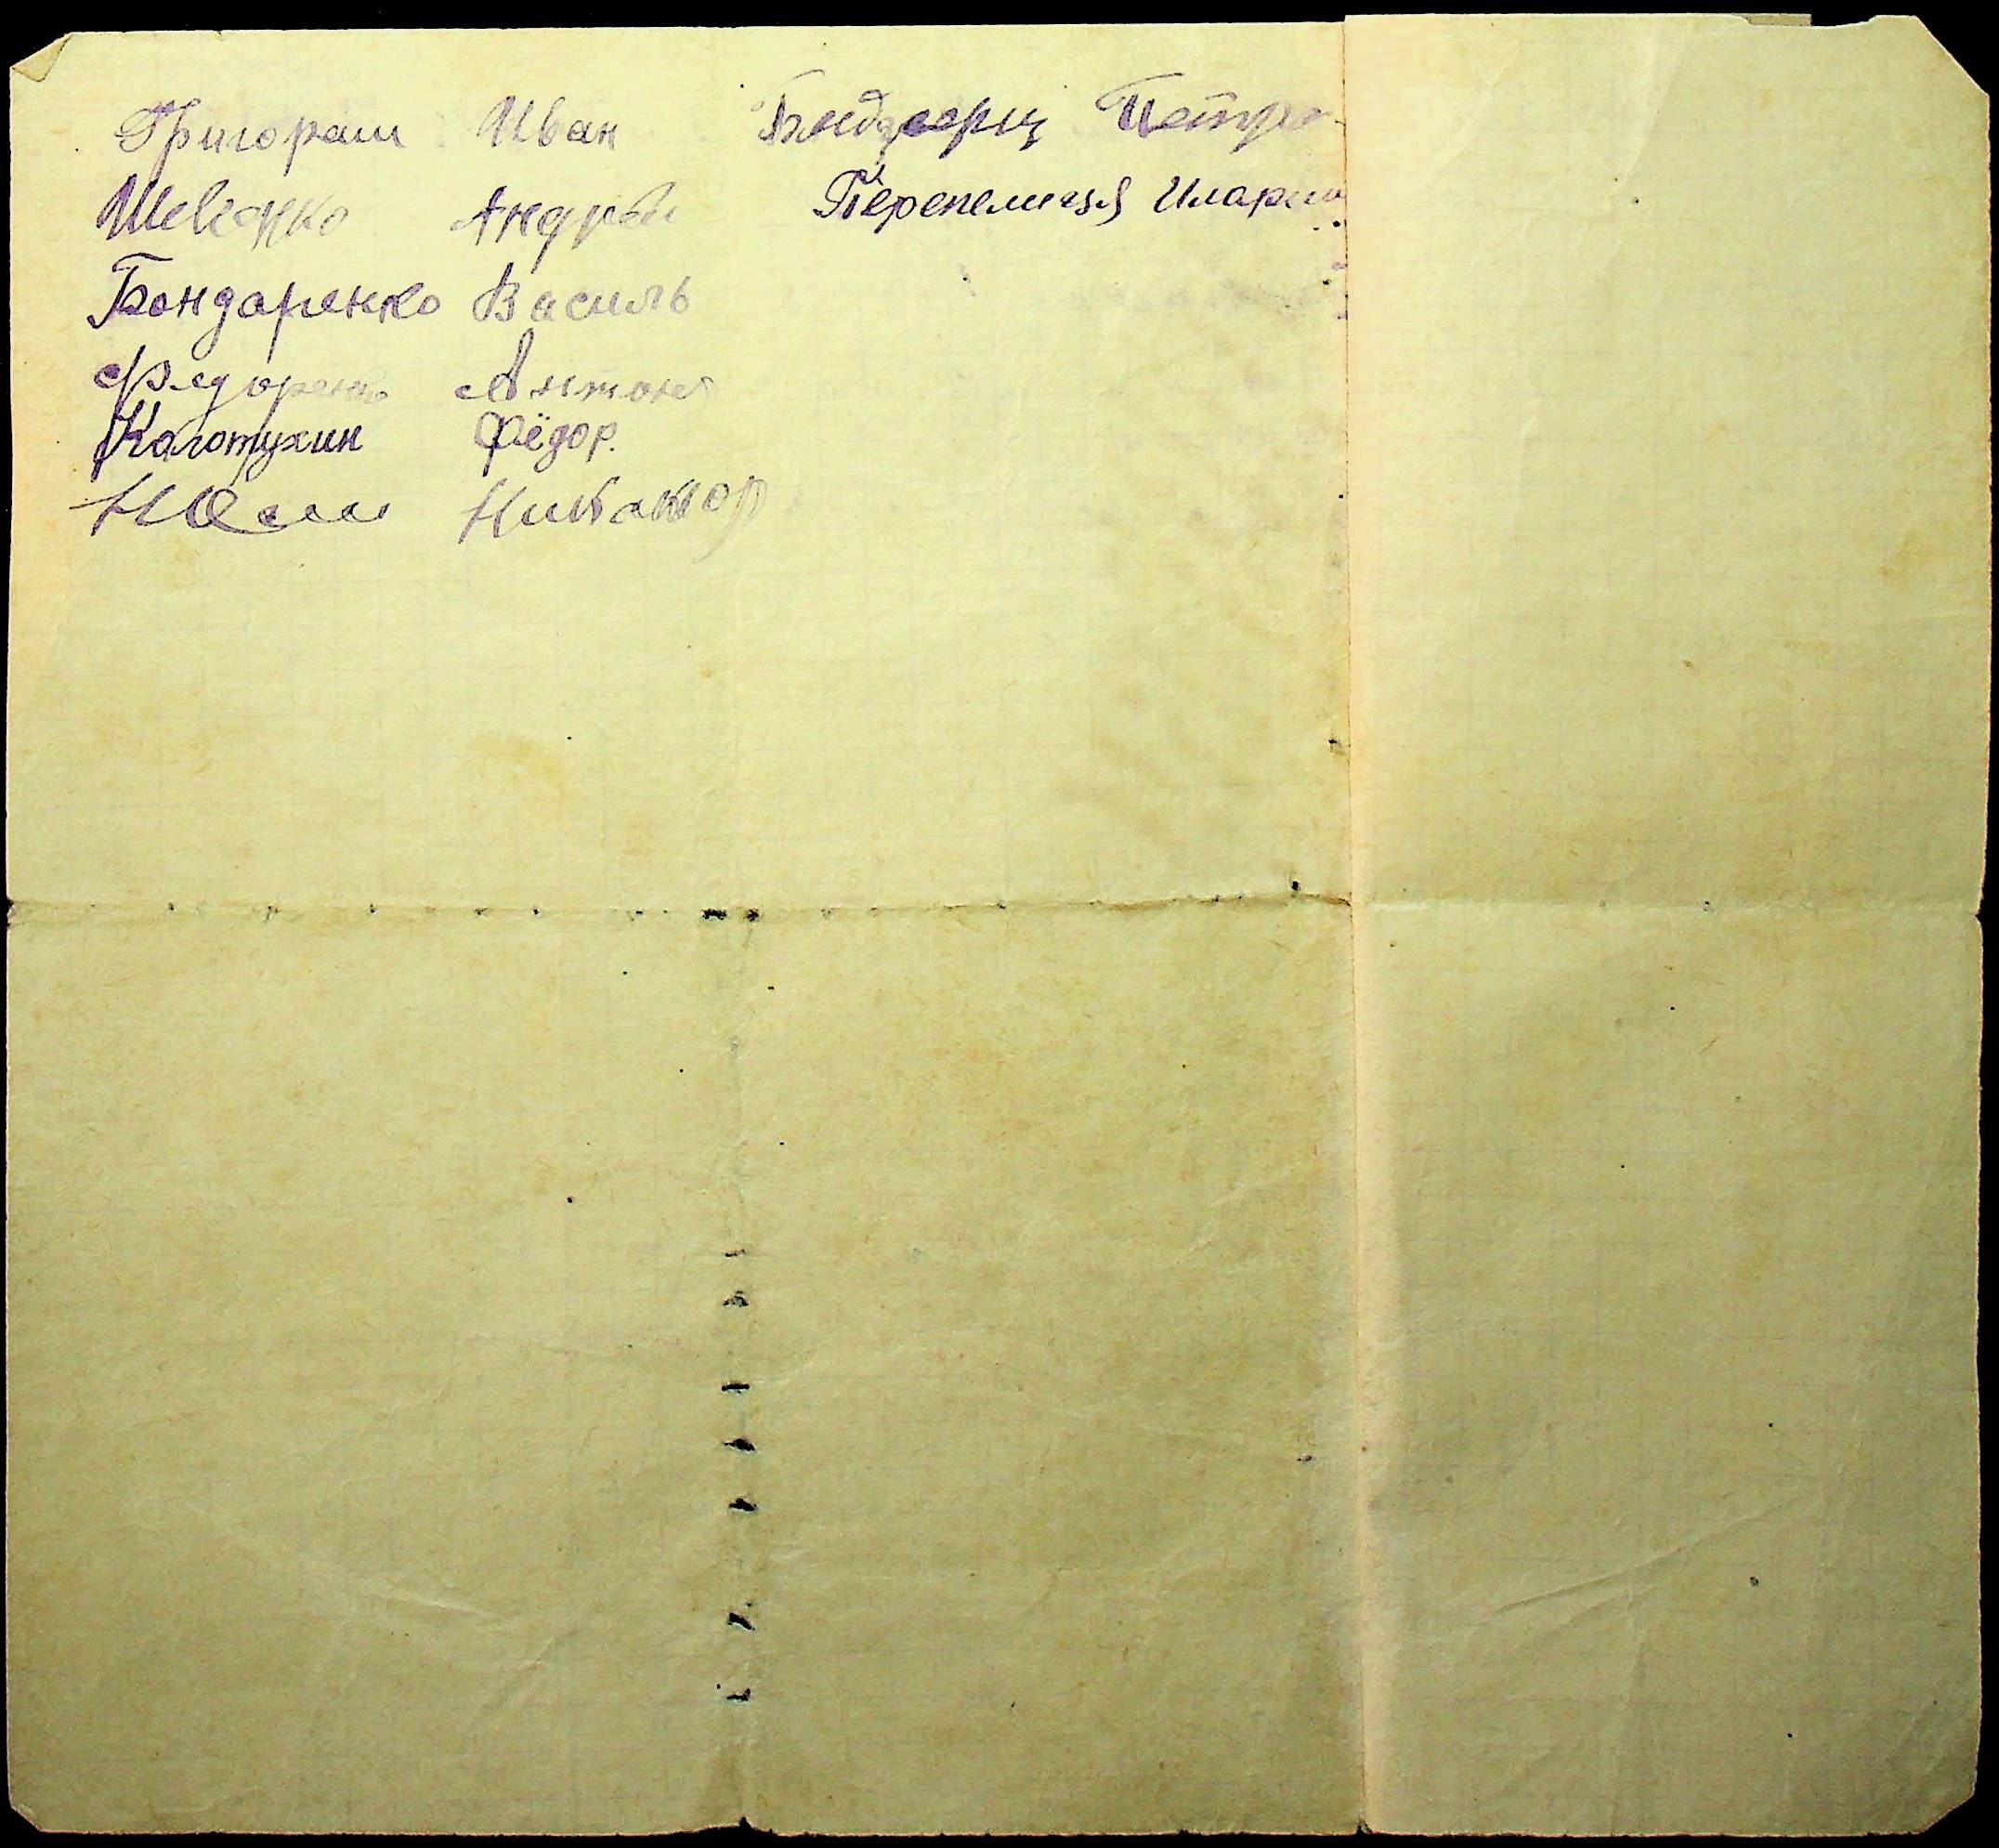 Григораш Иван
Шевченко Андрей
Бондаренко Василь
Федоренко Антон
Колотухин Фёдор.
Никанор
Петро
Перепелиця Иларио